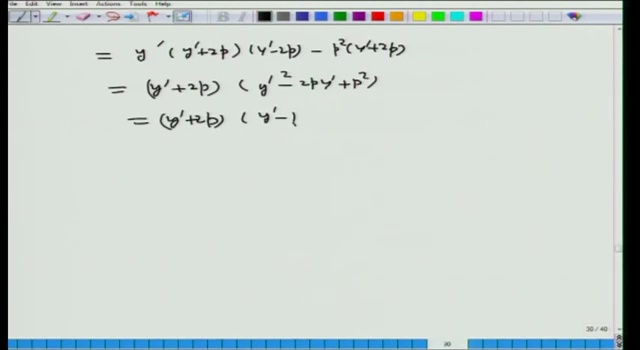 Edit View Insert Actions Tools Help
= y'(y'+2p)(y'-2p) - p²(y'+2p)
= (y'+2p) (y'² - 2py' + p²)
= (y'+2p) (y'-
30 / 40
30